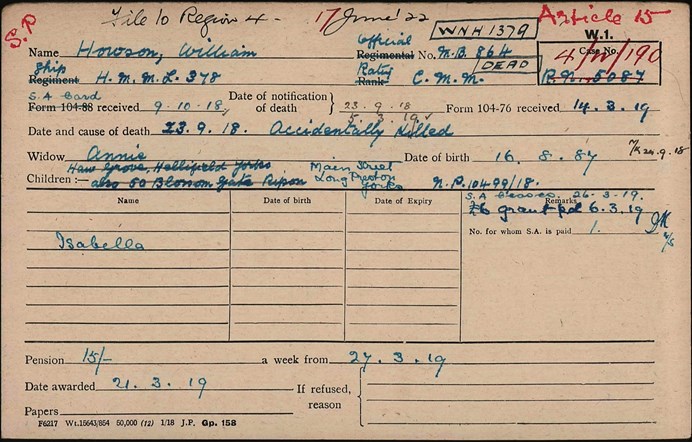 S.P
File to Region 4 - 17 June '22
WNH 1379
DEAD
Article 15
W.1.
Case No.
4/W/190
P.N. 5087
Name Howson, William Official Regimental No. M.B. 864
Ship Regiment H.M.M.L. 378 Rating Rank C.M.M.
S.A Card
Form 104-88 received 9.10.18 Date of notification of death 23.9.18 5.3.19 Form 104-76 received 14.3.19
Date and cause of death 23.9.18. Accidentally Killed
Widow Annie Date of birth 16.8.87 24.9.18
Haw Grove, Hellifield Yorks Main Street
Children :— also 50 Blossom Gate Ripon Long Preston Yorks N.P. 10499/18.
Name Date of birth Date of Expiry Remarks
S.A ceases 26.3.19.
grant pd 6.3.19
No. for whom S.A. is paid 1.
Isabella
Pension 15/- a week from 27.3.19
Date awarded 21.3.19 If refused, reason
Papers
F6217 Wt.15643/854 50,000 (12) 1/18 J.P. Gp. 158